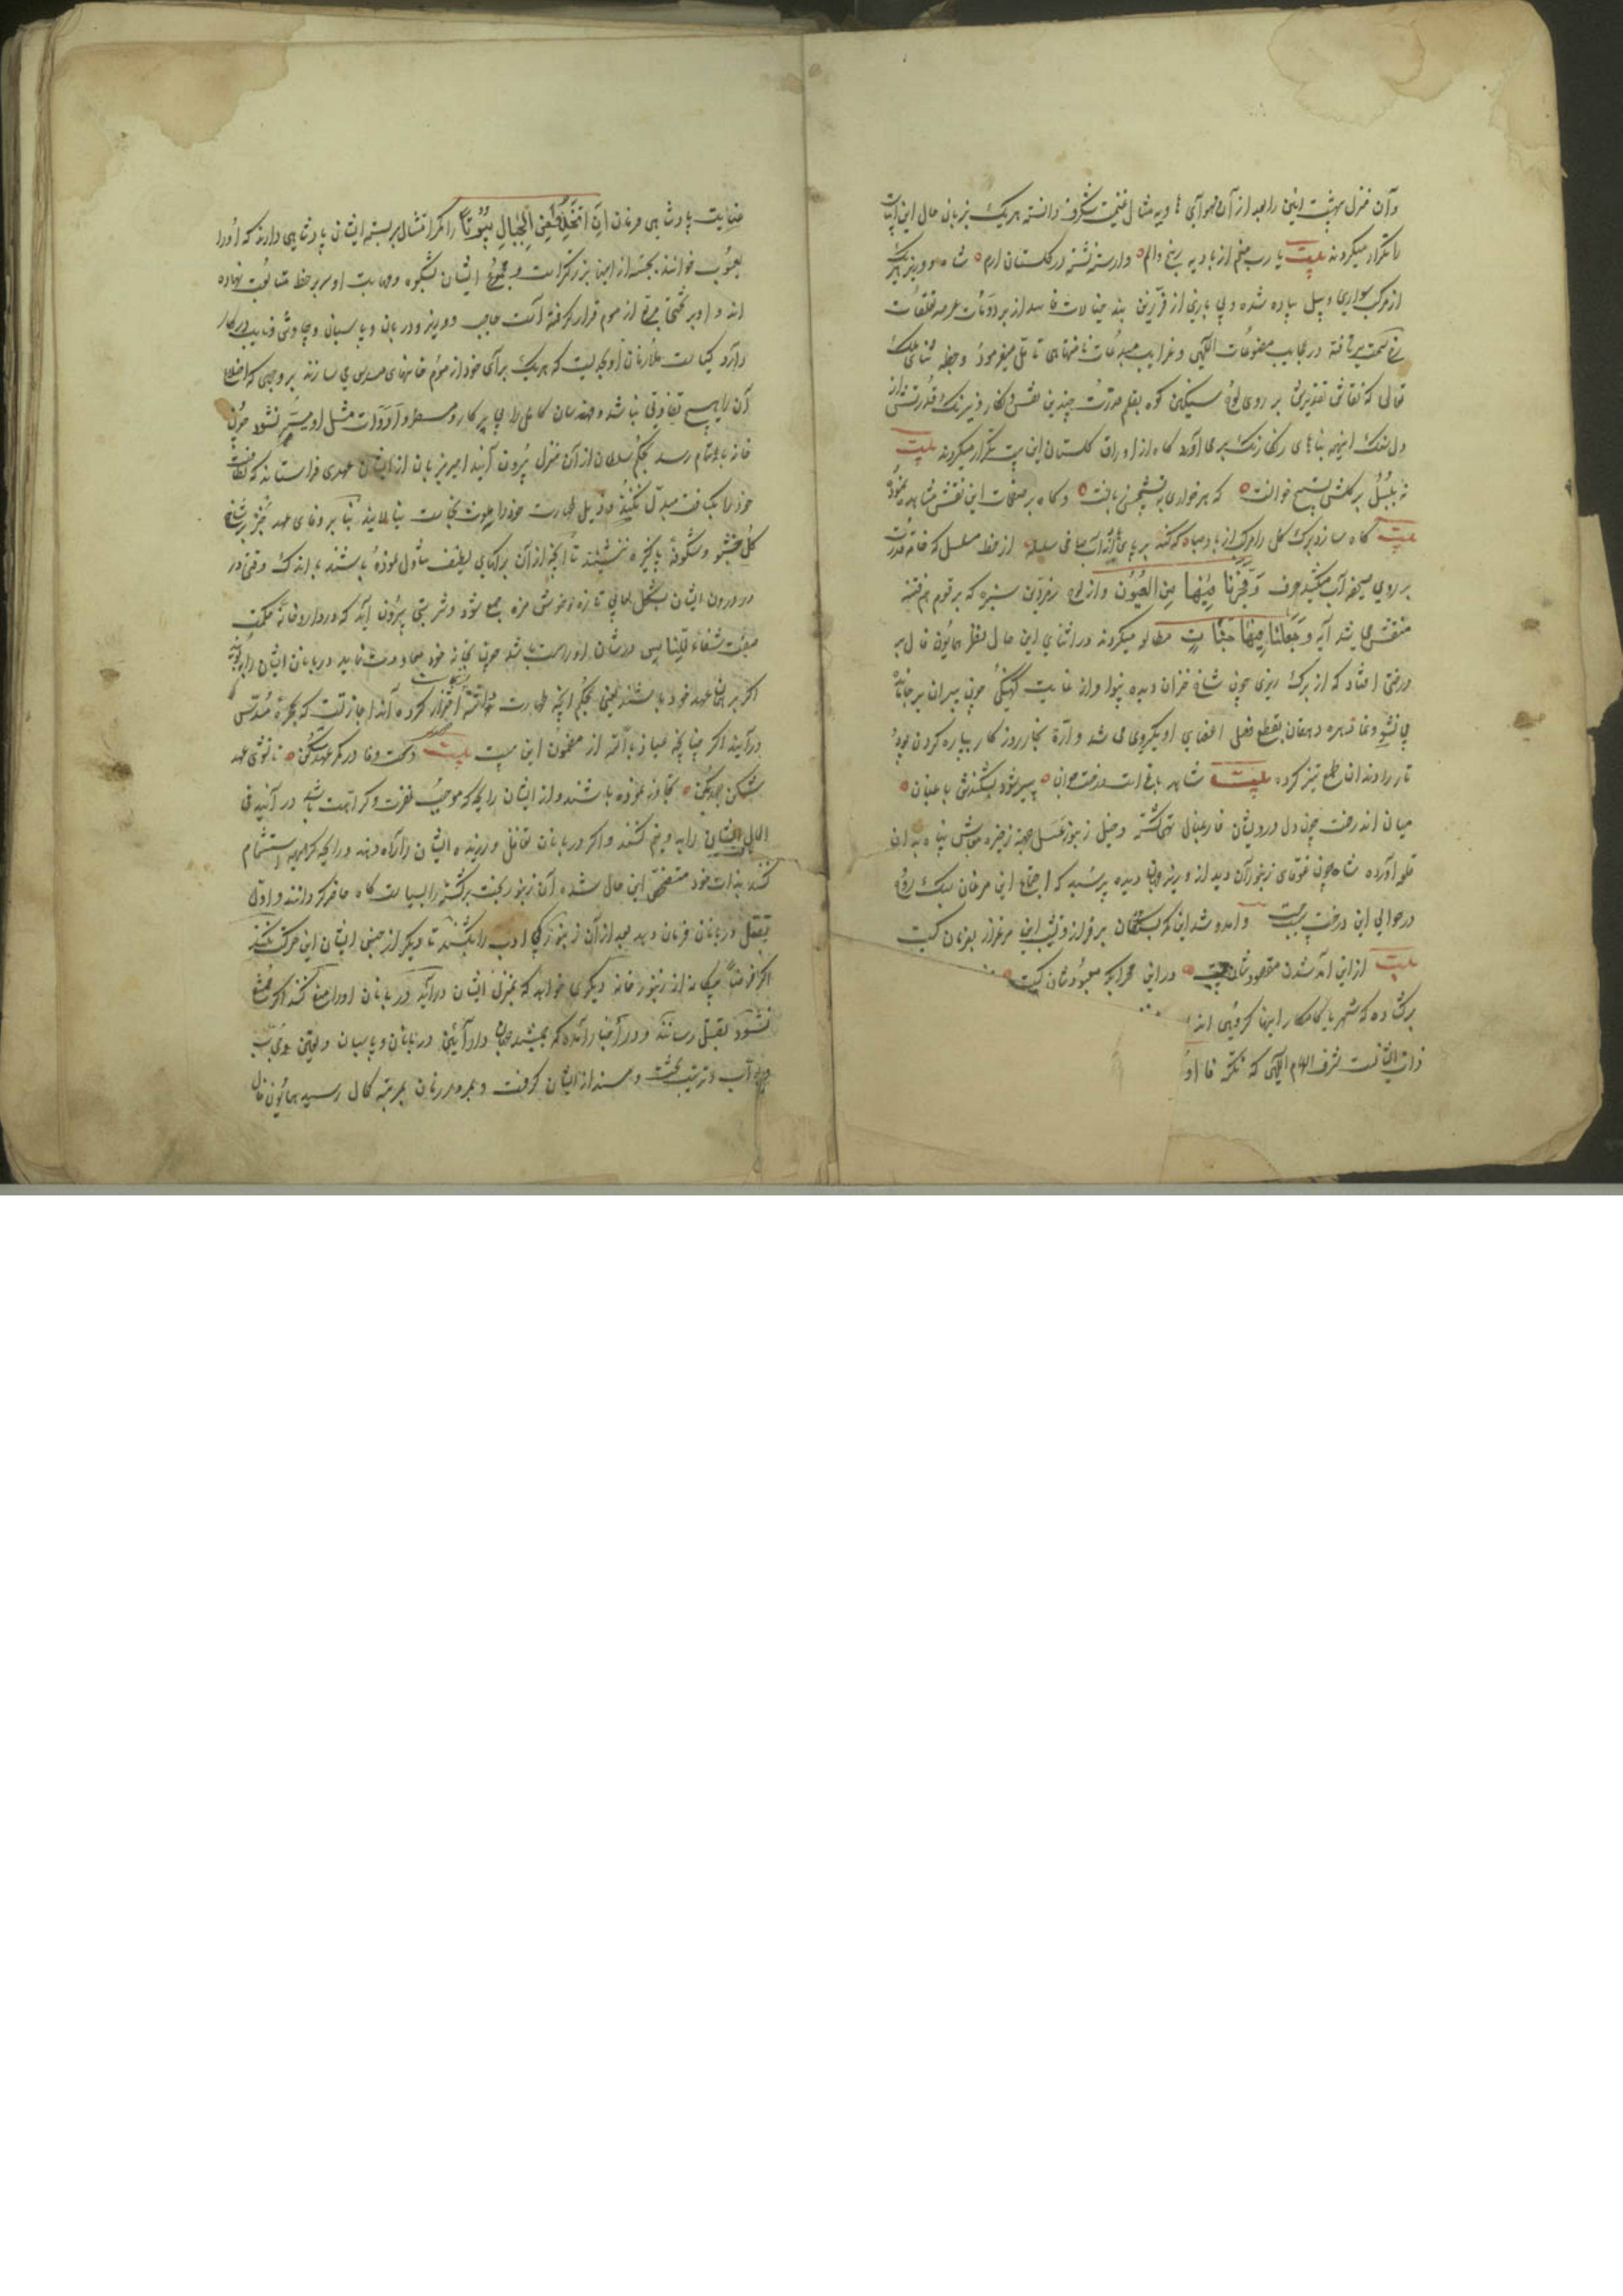 وآن منزل بهشت آیین را بعد از آن هوای هاویه مثال غنیمت شگرف دانسته هریک بزبان حال این ابیات
را تکرار میکردند بیت یا رب منم از بادیه رنج والم وارسته نشسته در گلستان ارم شاه و وزیر هریک
از مرکب سواری وپیل پیاده شده وبی بازی از فرزین بند خیالات فاسد از بردومات عرصه تعلقات
رخ همت برتافته در عجایب مصنوعات الهی وغرایب مبدعات نامتناهی تأمل میفرمود وخطبه ثنای ملک
تعالی که نقاش تقدیرش بر روی لوح سنگین کوه بقلم قدرت چندین نقش ونگار ونیرنگ قدرتش از
دل سنگ اینهمه بناهای رنگا رنگ برمی آورد گاه از اوراق گلستان این بیت تکرار میکردند بیت
نه بلبل بر گلش تسبیح خوانست که هر خواری به تسبیحش زبانست وگاه بر صفحات این نقش مشاهده نمود
بیت گاه سازد برگ گل را مرکب از باد صبا گه کند بر پای آب صافی سلسله از خط مسلسل که خامه قدرت
بر روی صحیفه آب میکشید حرف وَفَجَّرْنَا فِیْهَا مِنَ الْعُیُوْن واز لوح زمردین سبزه که برقوم هم فتنه
منقش می شد آیه وَجَعَلْنَا فِیْهَا جَنَّاتٍ مطالعه میکردند در اثنای این حال نظر همایون فال بر
درختی افتاد که از برگ ریزی چون شاخ خزان دیده بینوا واز غایت کهنگی چون پیران بر جا مانده
بی نشو ونما تبره دهقان بقطع فصل اعضای او یکروی می شد واره نجار روزگار بپاره کردن پود
تار را دندان طمع تیز کرده بیت شاهد باغ است درخت جوان پیر شود بشکندش باغبان
میان اندرخت چون دل درویشان فارغبال تهی گشته وخیل زنبور عسل جهة ذخیره معاش پناه بدان
قلعه آورده شاه چون غوغای زنبوران دید از وزیر جهان دیده پرسید که اجتماع این مرغان سبک روح
در حوالی این درخت بچه سبب وآمد وشد این کمر بستگان بر فراز ونشیب این مرغزار بفرمان کیست
بیت از این آمد شدن مقصودشان چیست در این محراب معبودشان کیست
برگشاده که شهریار کامکار اینها گروهی اند
ذات ایشانست بشرف الهام الهی که
عنایت پادشاهی فرمان اَنِ اتَّخِذِی مِنَ الْجِبَالِ بُیُوْتاً را کمر امتثال بر بسته ایشان پادشاهی دارند که او را
یعسوب خوانند بجثه از اینها بزرگتر است ومجموع ایشان بشکوه ومهابت او سر بر خط متابعت نهاده
اند واو بر تختی مربع از موم قرار گرفته است حاجب ووزیر ودربان وپاسبان وچاوش ونایب در کار
دارد کیاست ملازمان او بحدیست که هریک برای خود از موم خانهای مسدس می سازند بر وجهی که اضلاع
آن را هیچ تفاوتی نباشد ومهندسان کامل را بی پرکار ومسطر وادوات مثل او میسر نشود چون
خانه باتمام رسد بحکم سلطان از آن منزل بیرون آیند امیر زنبوران از ایشان عهدی فراستاند که لطافت
خود را بکثافت مبدل نکنند وذیل طهارت خود را بلوث نجاست نیالایند بنابر وفای عهد جز بر شاخ
گل خوشبو وشکوفه پاکیزه ننشینند تا آنچه از آن برگهای لطیف تناول نموده باشند باندک وقتی در
در درون ایشان بشکل لعابی تازه وخوش مزه جمع شود وشربتی بیرون آید که در داروخانه حکمت
صفت شفاءٌ للناس در شان او راست باشد چون بخانه خود معاودت نمایند دربانان ایشان را ببویند
اگر بر همان عهد خود باشند یعنی بحکم آنچه طهارت دانسته احتراز کرده اند اجازتست که بحجره مسدس
درآیند اگر چنانچه عیاذ بالله از مضمون این بیت بیت دست وفا در کمر عهد کن تا نشوی عهد
شکن جهد کن تجاوز نموده باشند واز ایشان رایحه که موجب نفرت وکراهت باشد در آیند فی
الحال ایشان را بدو نیم کنند واگر دربانان تغافل ورزیده ایشان را راه دهند ورایحه کریهه استشمام
کنند بذات خود متفحص این حال شده آن زنبور بخت برگشته را بسیاست گاه حاضر گردانند واول
بقتل دربانان فرمان دهد بعد از آن زنبور بی ادب را بکشند تا دیگر از جنس ایشان این حرکت نکند
اگر فرضاً بیگانه از زنبور خانه دیگری خواهد که بمنزل ایشان درآید دربانان او را منع کنند اگر ممتنع
نشود بقتل رسانند ودر اخبار آمده که جمشید جهان دار آیین دربانان وپاسبان وتعیین
وترتیب تخت ومسند از ایشان گرفت وبمرور زمان بمرتبه کمال رسید همایون فال